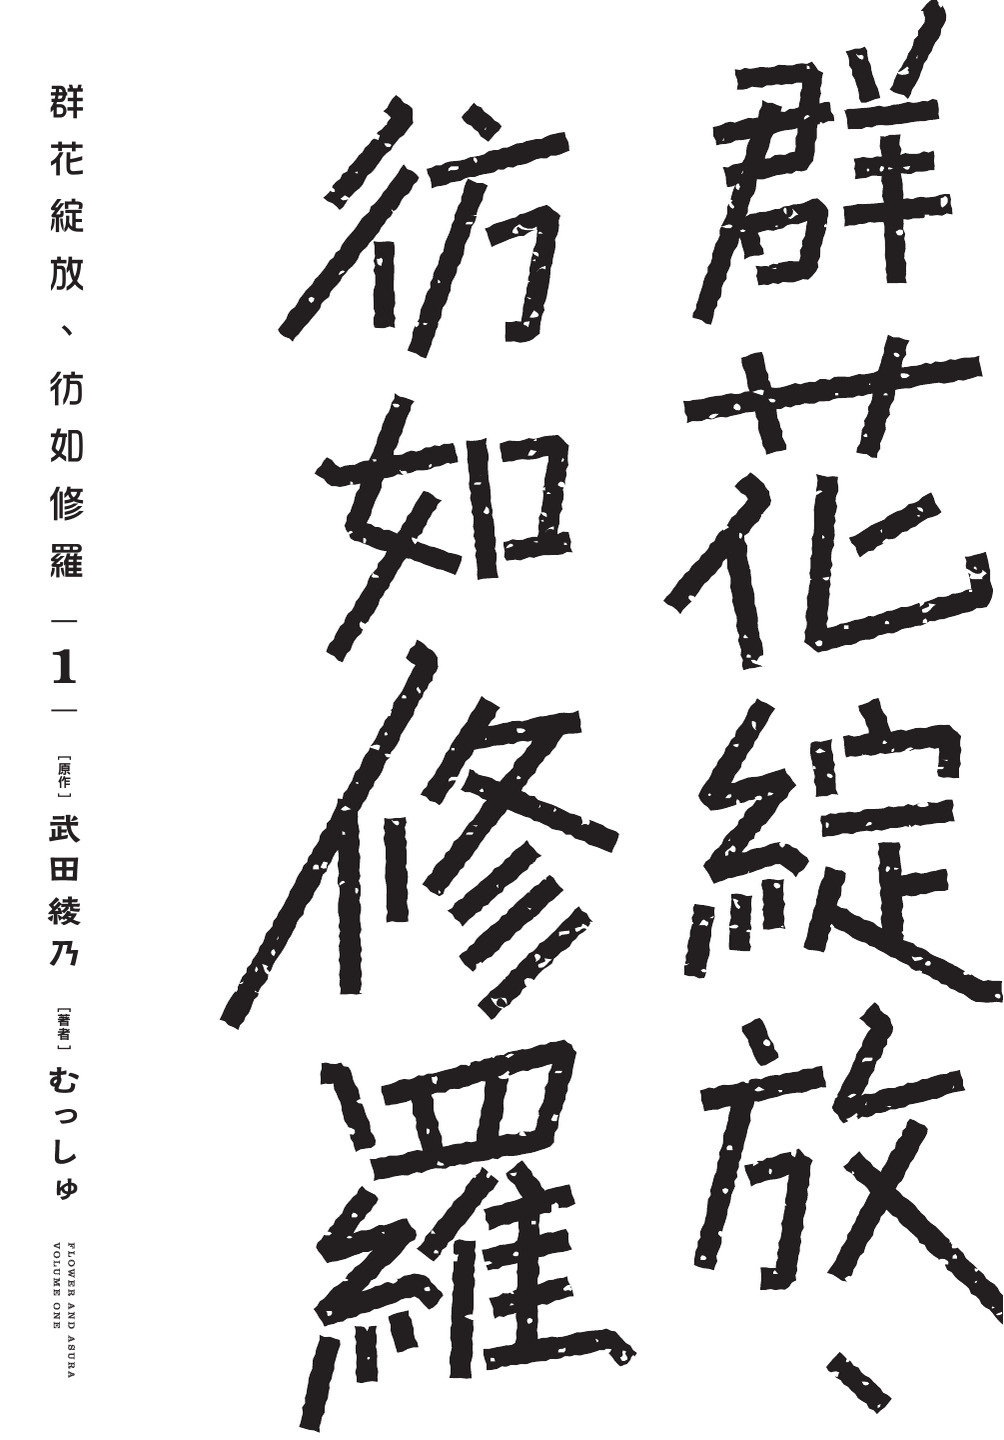 群花綻放、
彷如修羅
群花綻放、彷如修羅—1—
[原作]武田綾乃
[著者]むっしゅ
FLOWER AND ASURA
VOLUME ONE